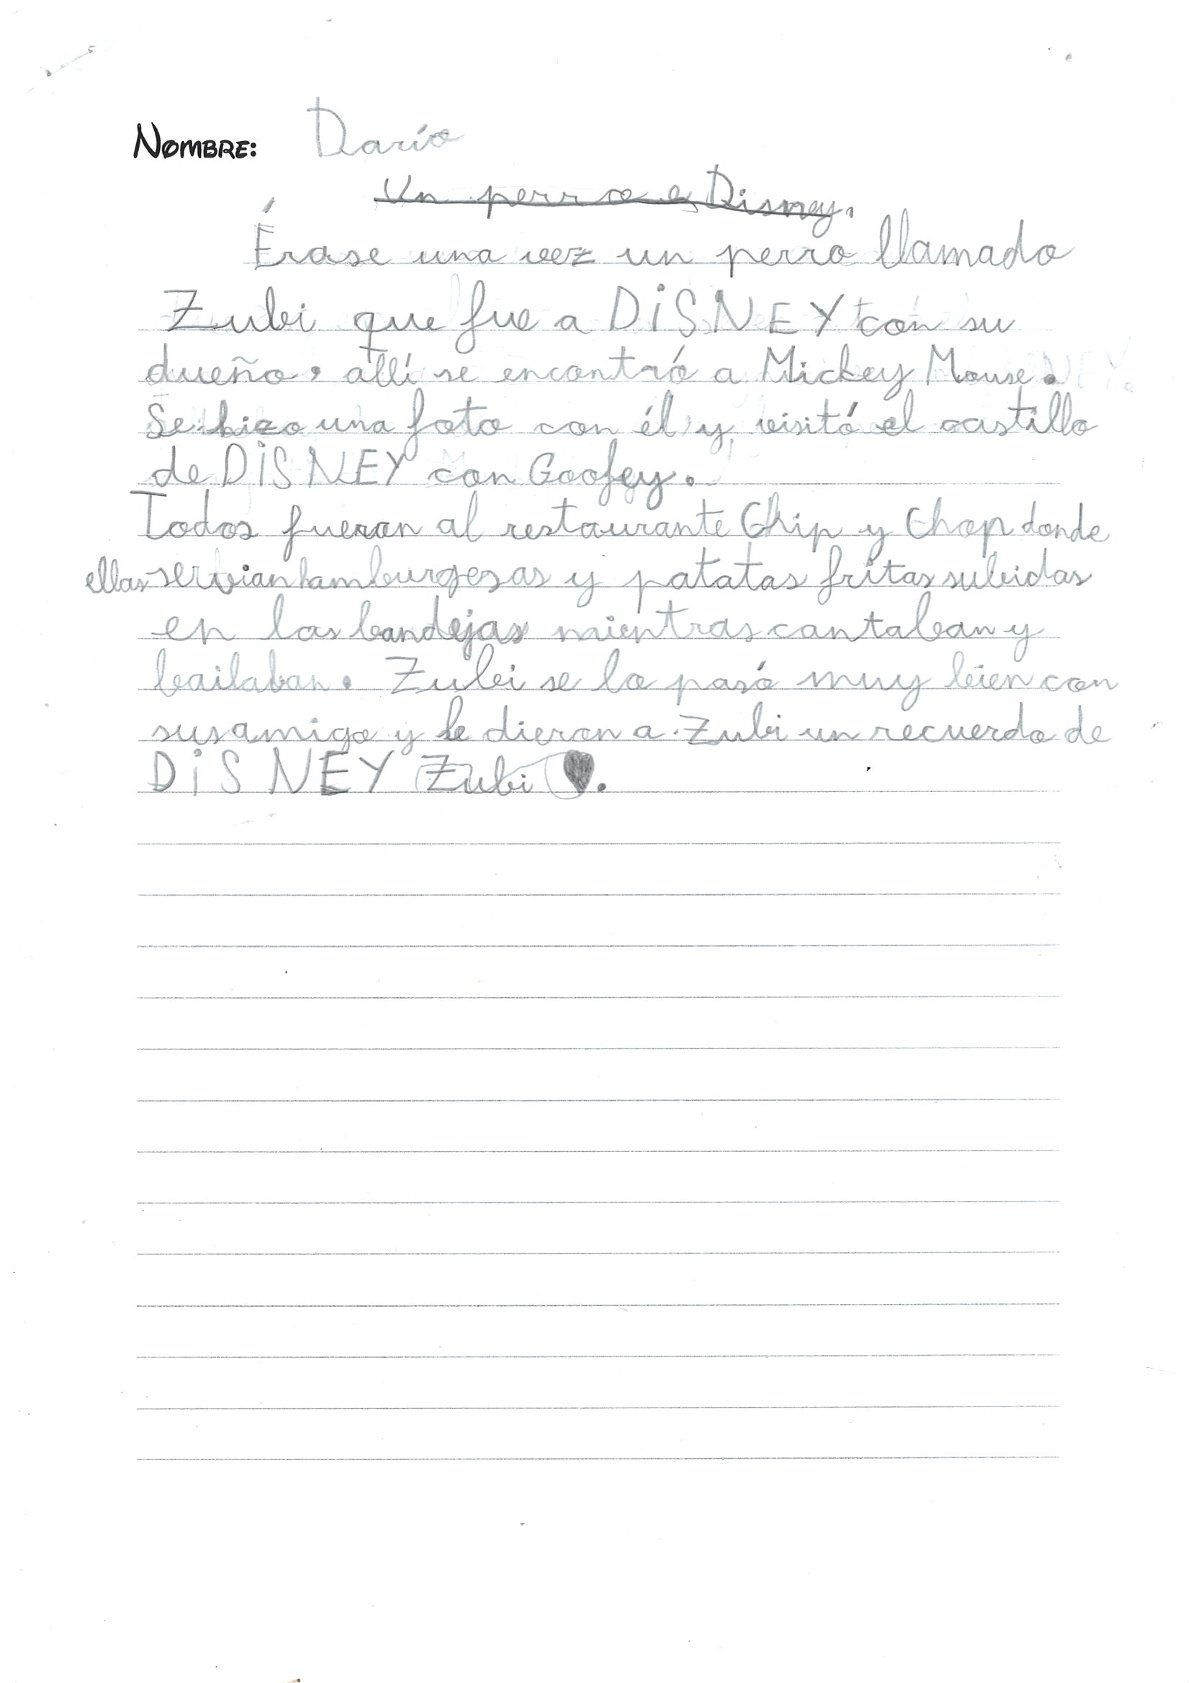 NOMBRE: Darío
Un perro e Disney.
Érase una vez un perro llamado
Zubi que fue a DiSNEY con su
dueño, allí se encontró a Mickey Mouse.
Se hizo una foto con él y visitó el castillo
de DiSNEY con Goofey.
Todos fueron al restaurante Chip y Chop donde
ellas servian hamburgesas y patatas fritas subidas
en las bandejas mientras cantaban y
bailaban. Zubi se lo pasó muy bien con
sus amigo y le dieron a Zubi un recuerdo de
DiSNEY Zubi ♥.